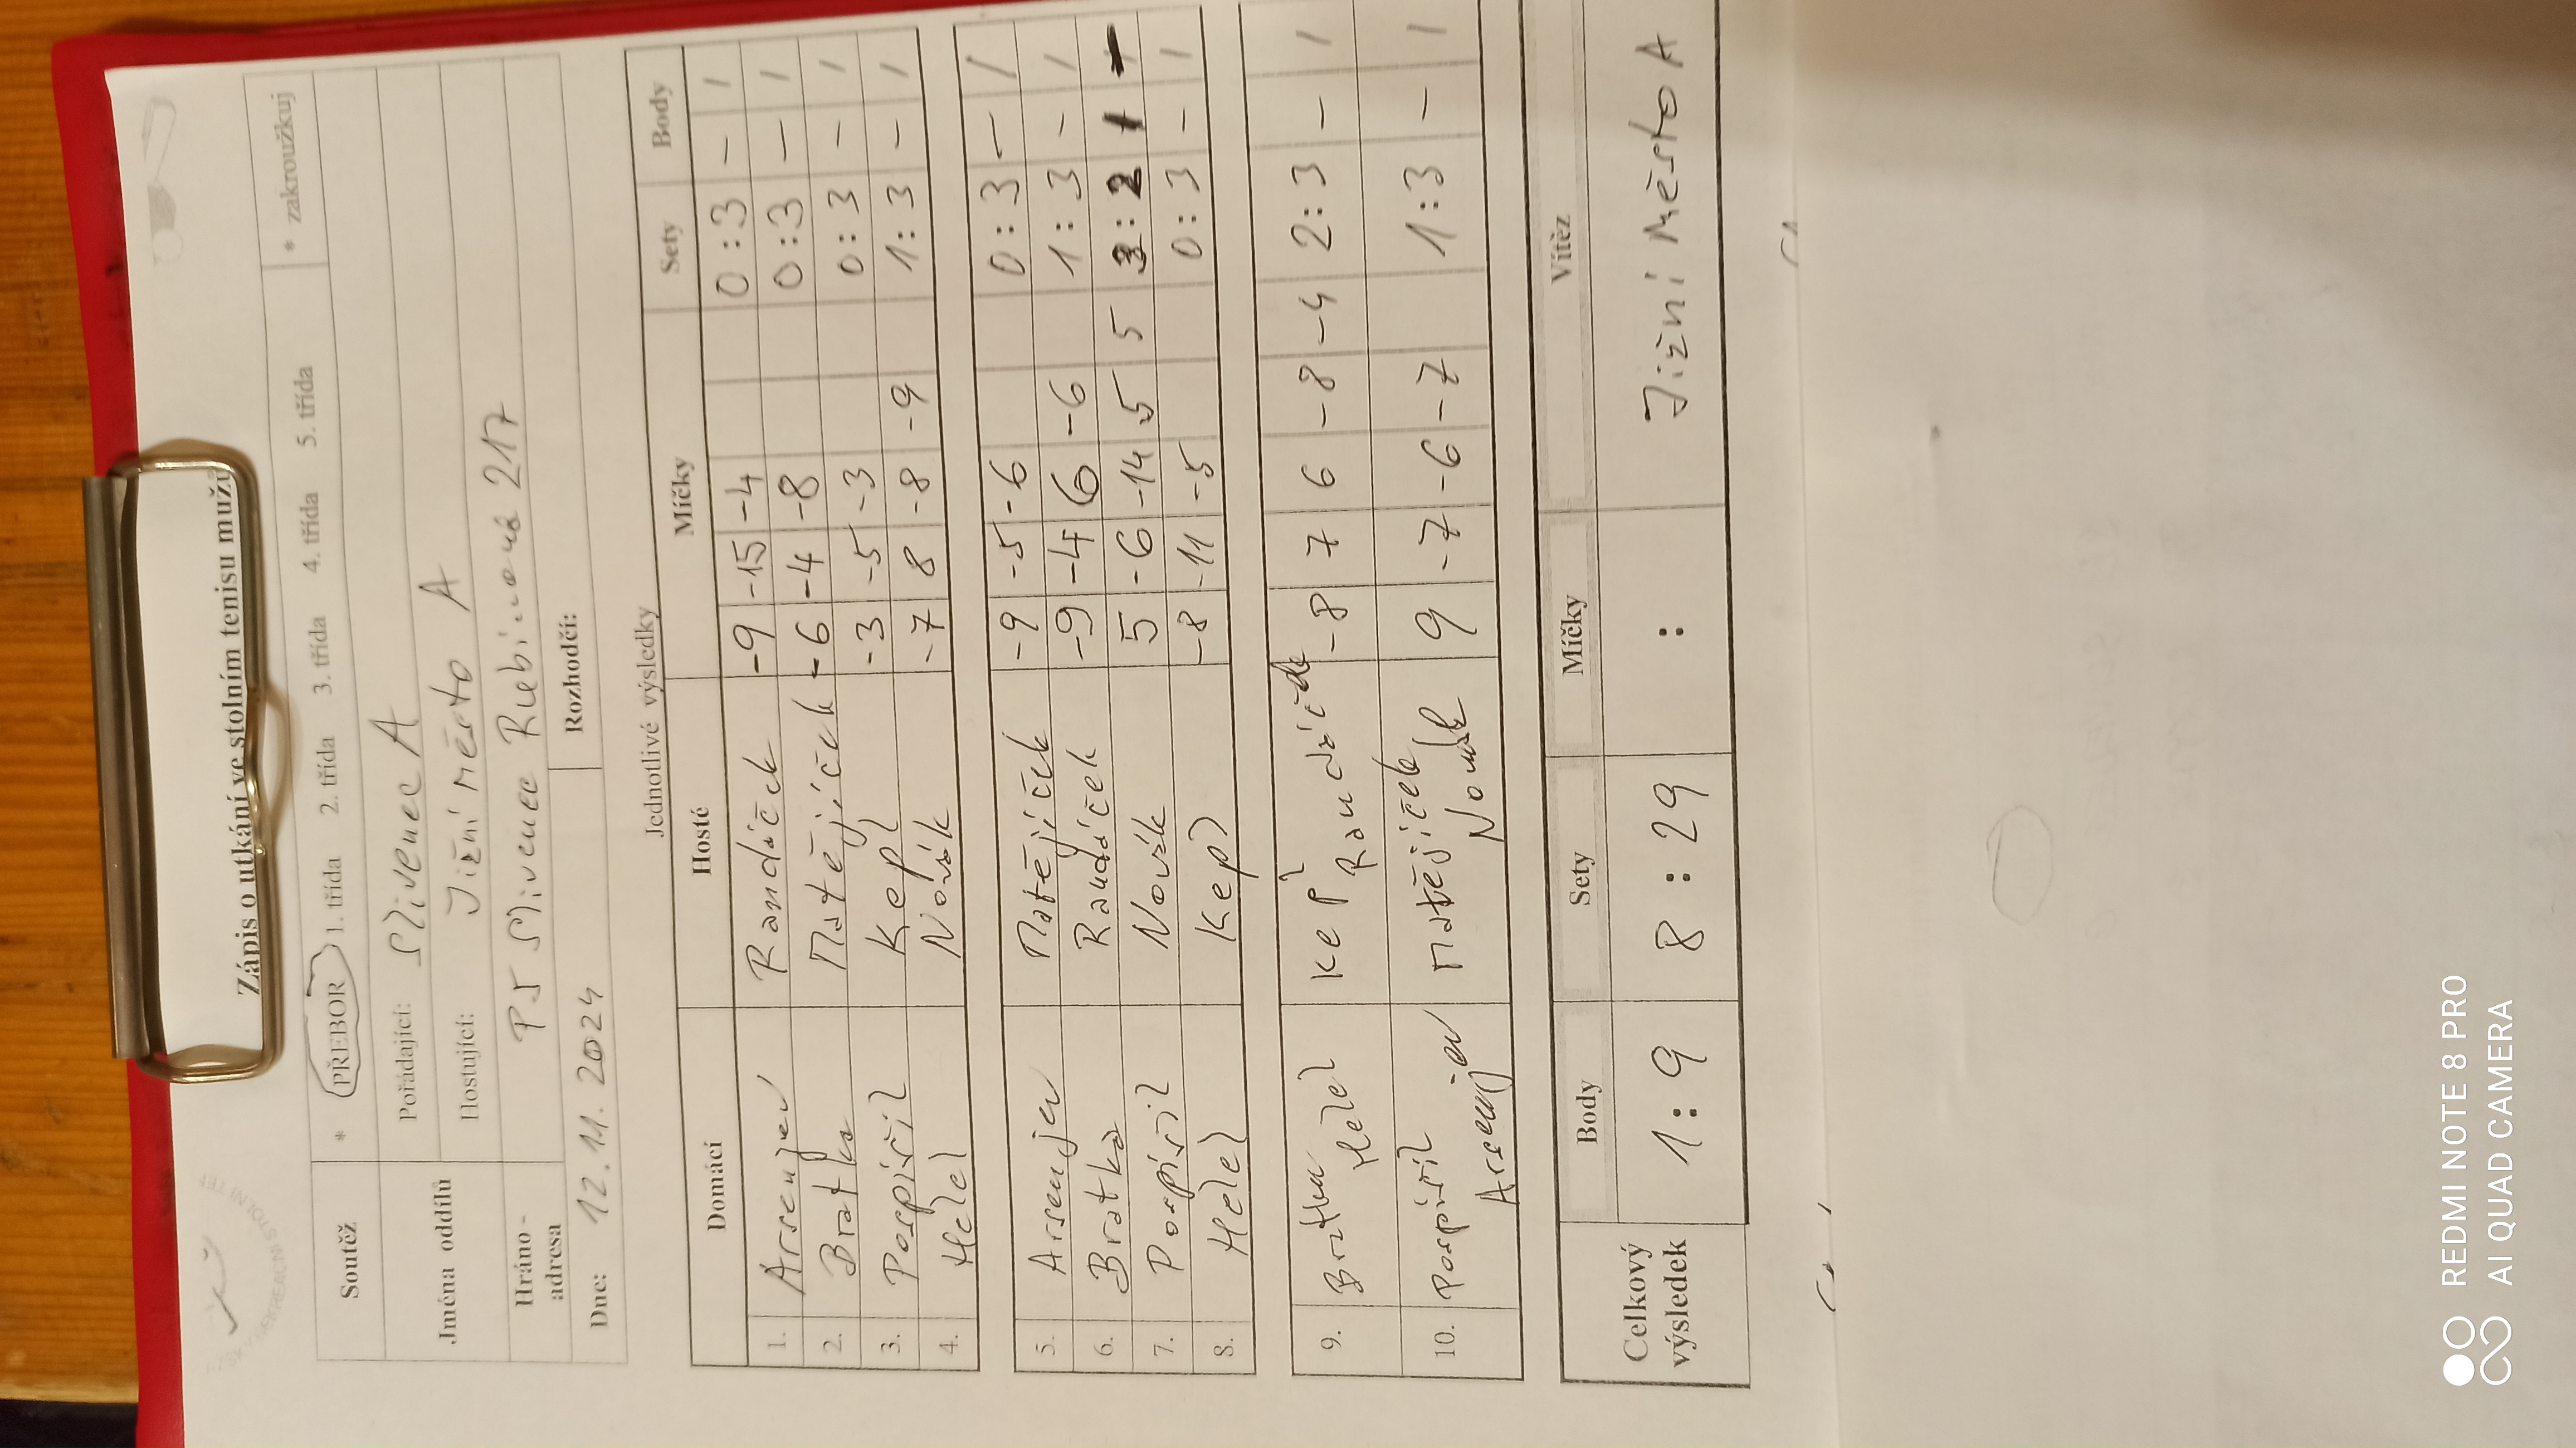 Zápis o utkání ve stolním tenisu mužů
Soutěž * PŘEBOR 1. třída 2. třída 3. třída 4. třída 5. třída * zakroužkuj
Jména oddílů Pořádající: Slivenec A
Hostující: Jižní Město A
Hráno - adresa PJ Slivenec 217
Dne: 12.11.2024 Rozhodčí:
Jednotlivé výsledky
Domácí Hosté Míčky Sety Body
1. Arsenjev Raudíček -9 -15 -4 0:3 – 1
2. Bratka Matějíček -6 -4 -8 0:3 – 1
3. Pospíšil Kepl -3 -5 -3 0:3 – 1
4. Helel Novák -7 8 -8 -9 1:3 – 1
5. Arsenjev Matějíček -9 -5 -6 0:3 – 1
6. Bratka Raudíček -9 -4 6 -6 1:3 – 1
7. Pospíšil Novák 5 -6 -14 5 5 3:2 1
8. Helel Kepl -8 -11 -5 0:3 – 1
9. Bratka Kepl -8 7 6 -8 -4 2:3 – 1
Helel Raudíček
10. Pospíšil Matějíček 9 -7 -6 -7 1:3 – 1
Arsenjev Novák
Celkový výsledek Body Sety Míčky Vítěz
1:9 8:29 : Jižní Město A
REDMI NOTE 8 PRO
AI QUAD CAMERA